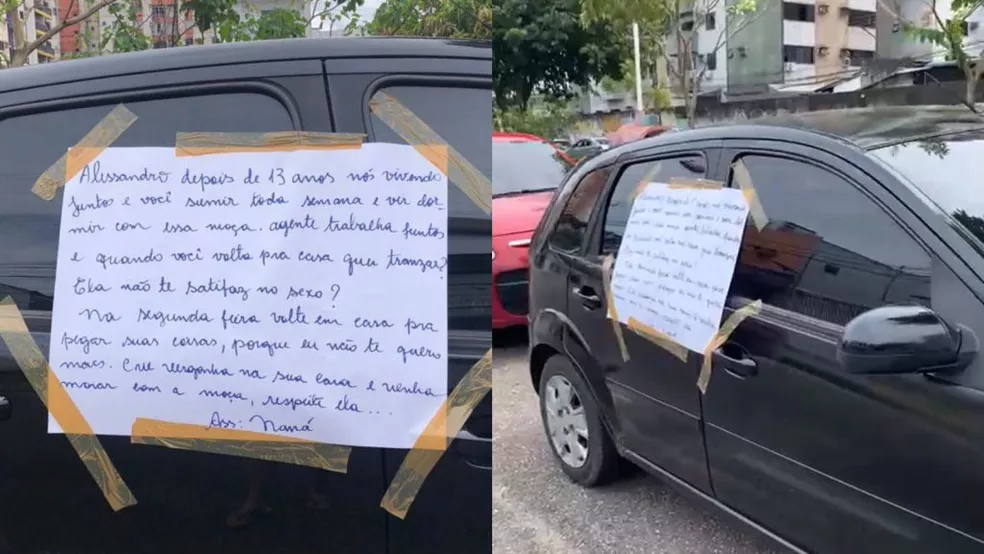 Alessandro depois de 13 anos nós vivendo
juntos e você sumir toda semana e vir dor
mir com essa moça. agente trabalha juntos
e quando você volta pra casa quer tranzar?
Ela não te satifaz no sexo?
Na segunda feira volte em casa pra
pegar suas coisas, porque eu não te quero
mais. Crie vergonha na sua cara e venha
morar com a moça, respeite ela...
Ass: Naná